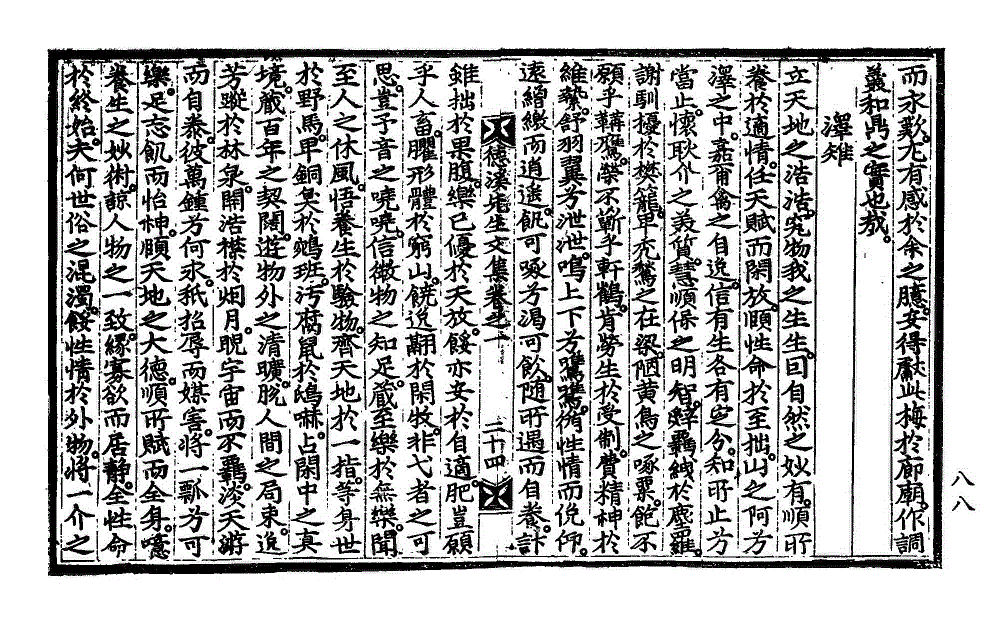 而永歎。尤有感於余之臆。安得獻此梅於廊廟。作調
羹和鼎之實也哉。
澤雉
立天地之浩浩。究物我之生生。曰自然之妙有。順所
養於適情。任天賦而閑放。順性命於至拙。山之阿兮
澤之中。嘉甫禽之自逸。信有生各有定分。知所止兮
當止。懷耿介之美質。慧順保之明智。辭羈絏於塵羅。
謝馴擾於樊籠。卑禿鶖之在梁。陋黃鳥之啄粟。飽不
願乎鞲鷹。榮不蘄乎軒鶴。肯勞生於受制。費精神於
維縶。舒羽翼兮泄泄。鳴上下兮鷕鷕。脩性情而俛仰。
遠繒繳而逍遙。飢可啄兮渴可飮。隨所遇而自養。計
德溪先生文集卷之一 二十四
雖拙於果腹。樂已優於天放。餒亦安於自適。肥豈願
乎人畜。臞形體於窮山。饒逸翮於閑牧。非弋者之可
思。豈予音之嘵嘵。信微物之知足。蔵至樂於無樂。聞
至人之休風。悟養生於驗物。齊天地於一指。等身世
於野馬。卑銅臭於鵷班。汚腐鼠於鴟嚇。占閑中之眞
境。蔵百年之契闊。遊物外之淸曠。脫人間之局束。逸
芳蹤於林泉。開浩襟於烟月。睨宇宙而不羈。淡天游
而自泰。彼萬鍾兮何求。秖招辱而媒害。將一瓢兮可
樂。足忘飢而怡神。順天地之大德。順所賦而全身。噫
養生之妙術。諒人物之一致。緣寡欲而居靜。全性命
於終始。夫何世俗之混濁。餒性情於外物。將一介之
八八